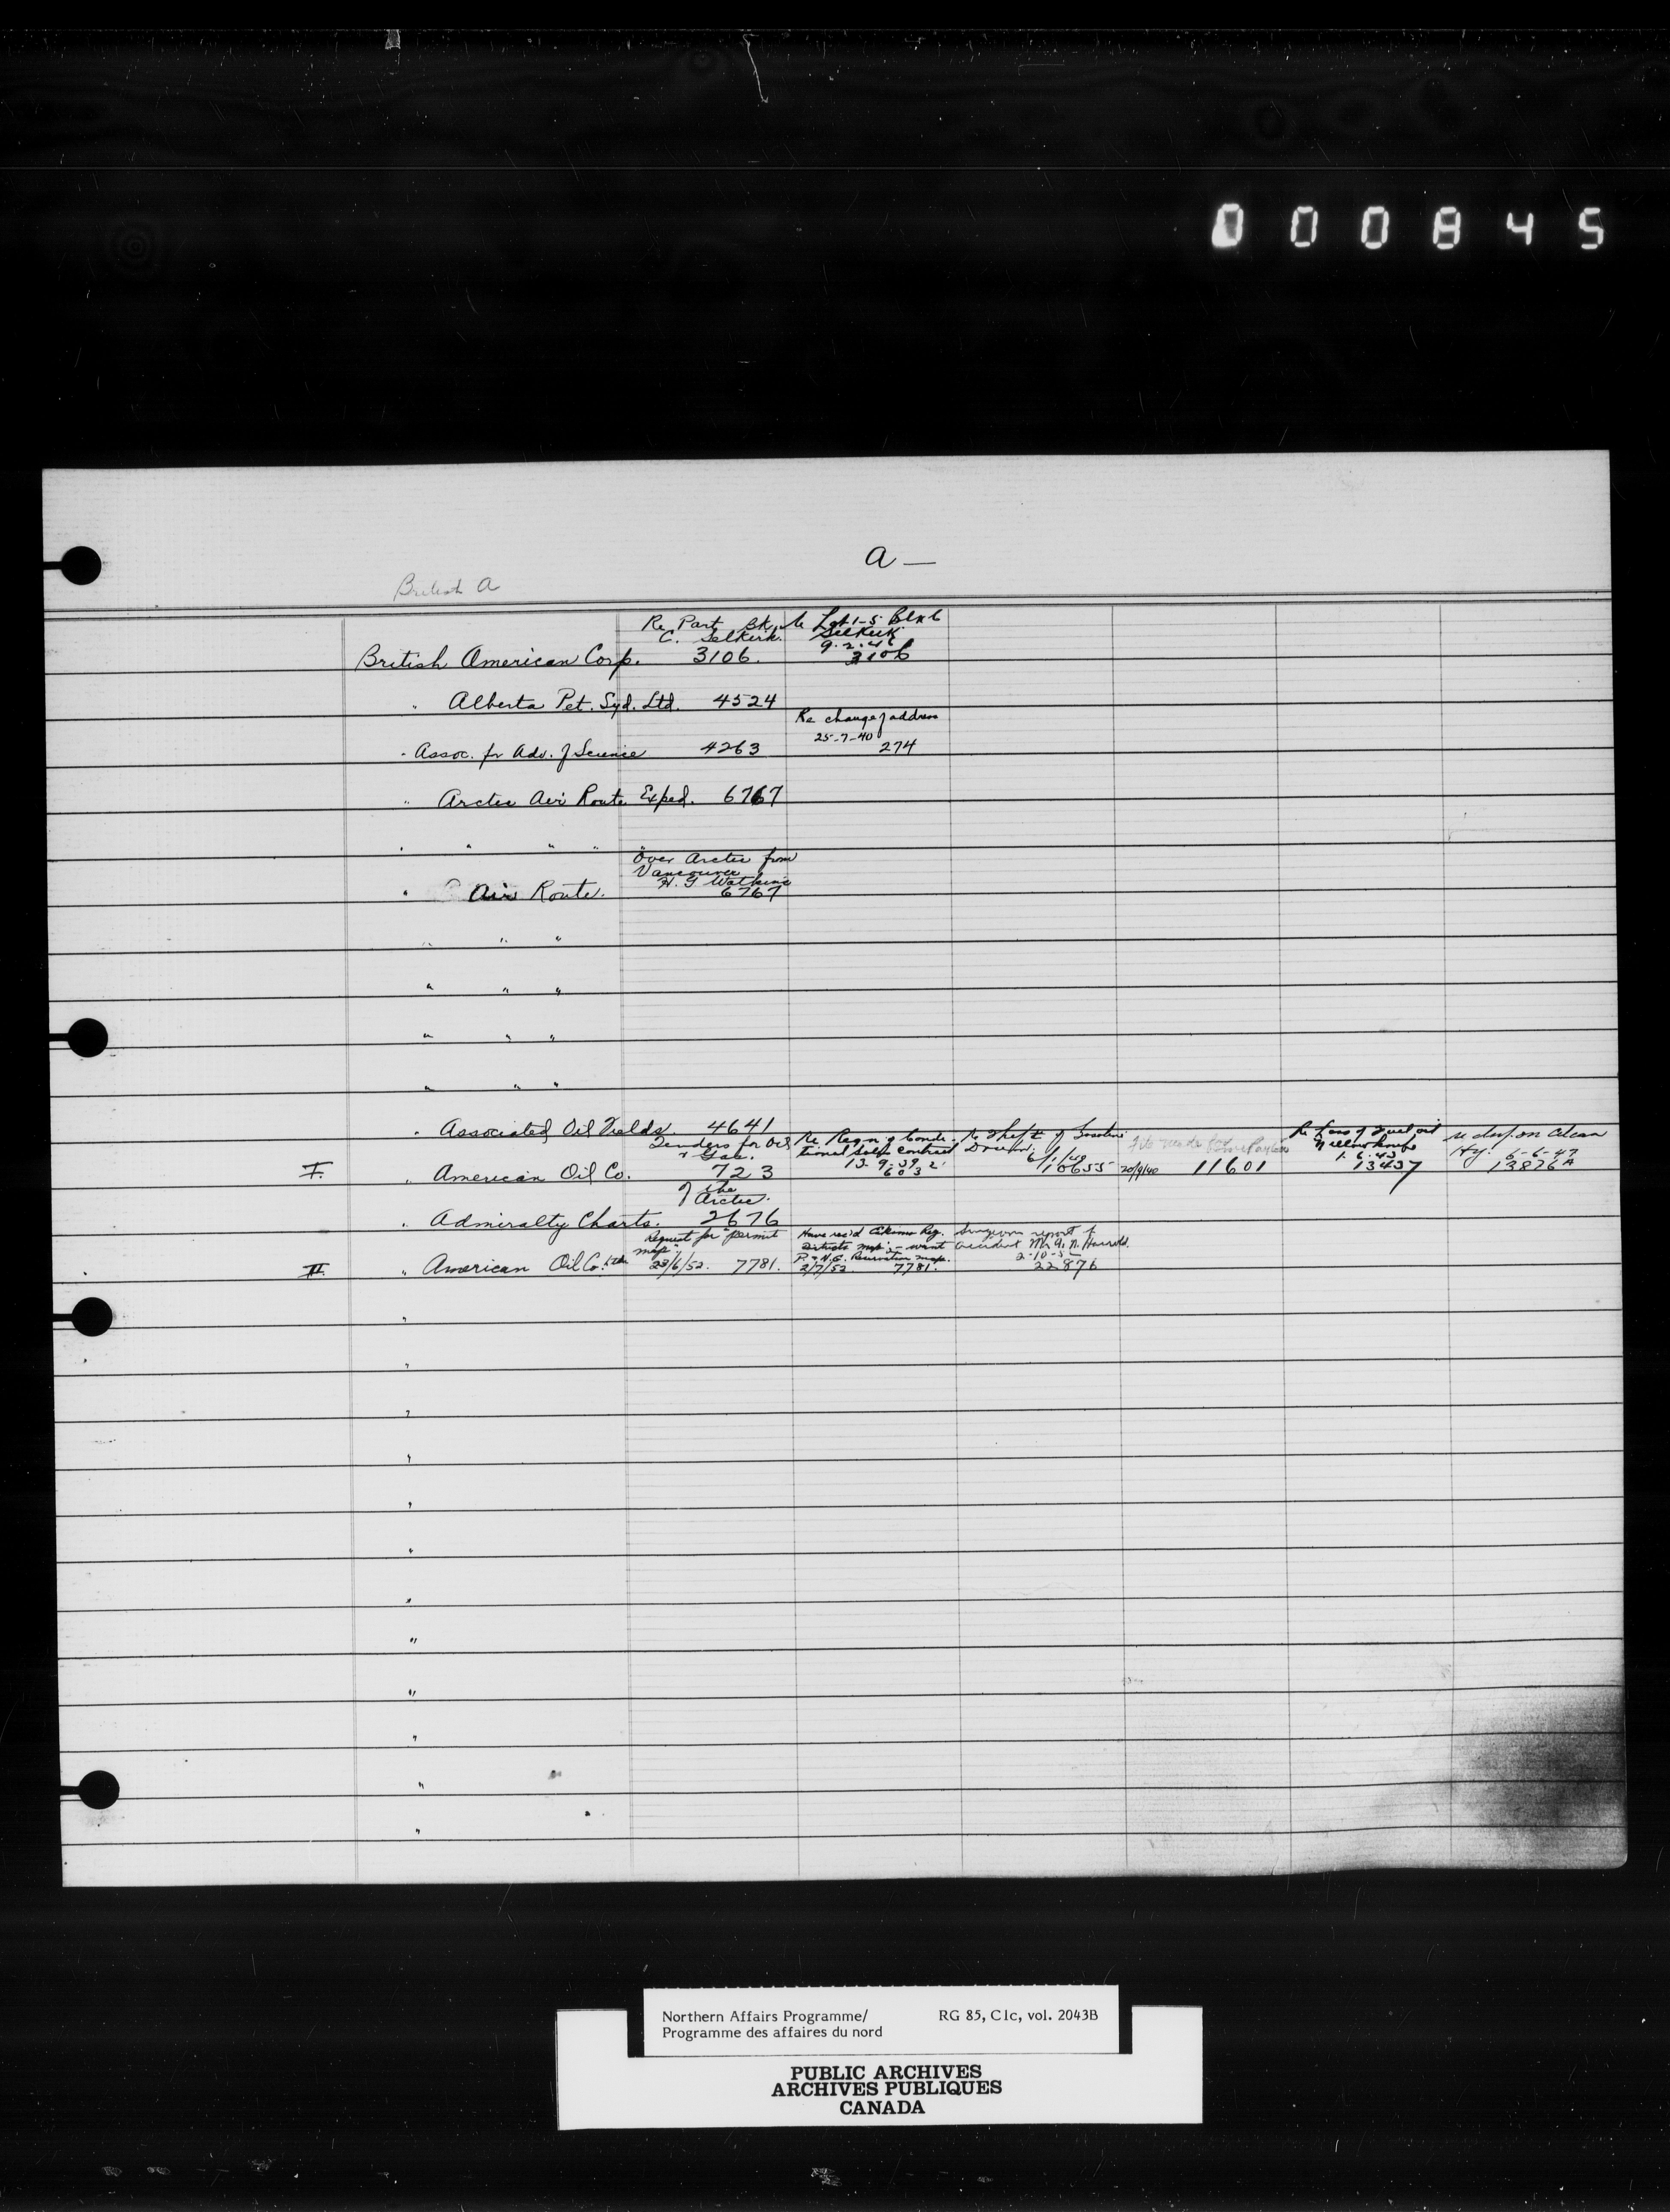 000845
a —
British a
Re Part Bk. Re Lot 1-5 Blk 6
C. Selkirk. Selkirk
9.2.46
British American Corp. 3106. 3106
" Alberta Pet. Syd. Ltd. 4524
Re change of address
25-7-40
" Assoc. for Adv. of Science 4263 274
" Arctic Air Route Exped. 6767
" " " " "
Over Arctic from
Vancouver
H. G Watkins
" Air Route. 6767
" " "
" " "
" " "
" " "
" Associated Oil Fields. 4641
Tenders for Oil Re. Regn of Condi- Re Theft of Gasoline Re Loss of Fuel oil
& Gas. tional Sales Contract Drums. Yellowknife
13.9.39 6/1/40 1.6.43 Hy. 6-6-47
I. " American Oil Co. 723 6032 10655 20/9/40 11601 13437 13876A
of the
Arctic.
" Admiralty Charts. 2676
Request for "permit Have rec'd Eskimo Reg. Surgeon report of
map". Districts map - want accident Mr. G. N.
P. & N.G. Reservation map. 2-10-5
II " American Oil Co. Ltd. 23/6/52. 7781. 2/7/52. 7781. 22876
"
"
"
"
"
"
"
"
"
"
"
"
Northern Affairs Programme/ RG 85, C1c, vol. 2043B
Programme des affaires du nord
PUBLIC ARCHIVES
ARCHIVES PUBLIQUES
CANADA